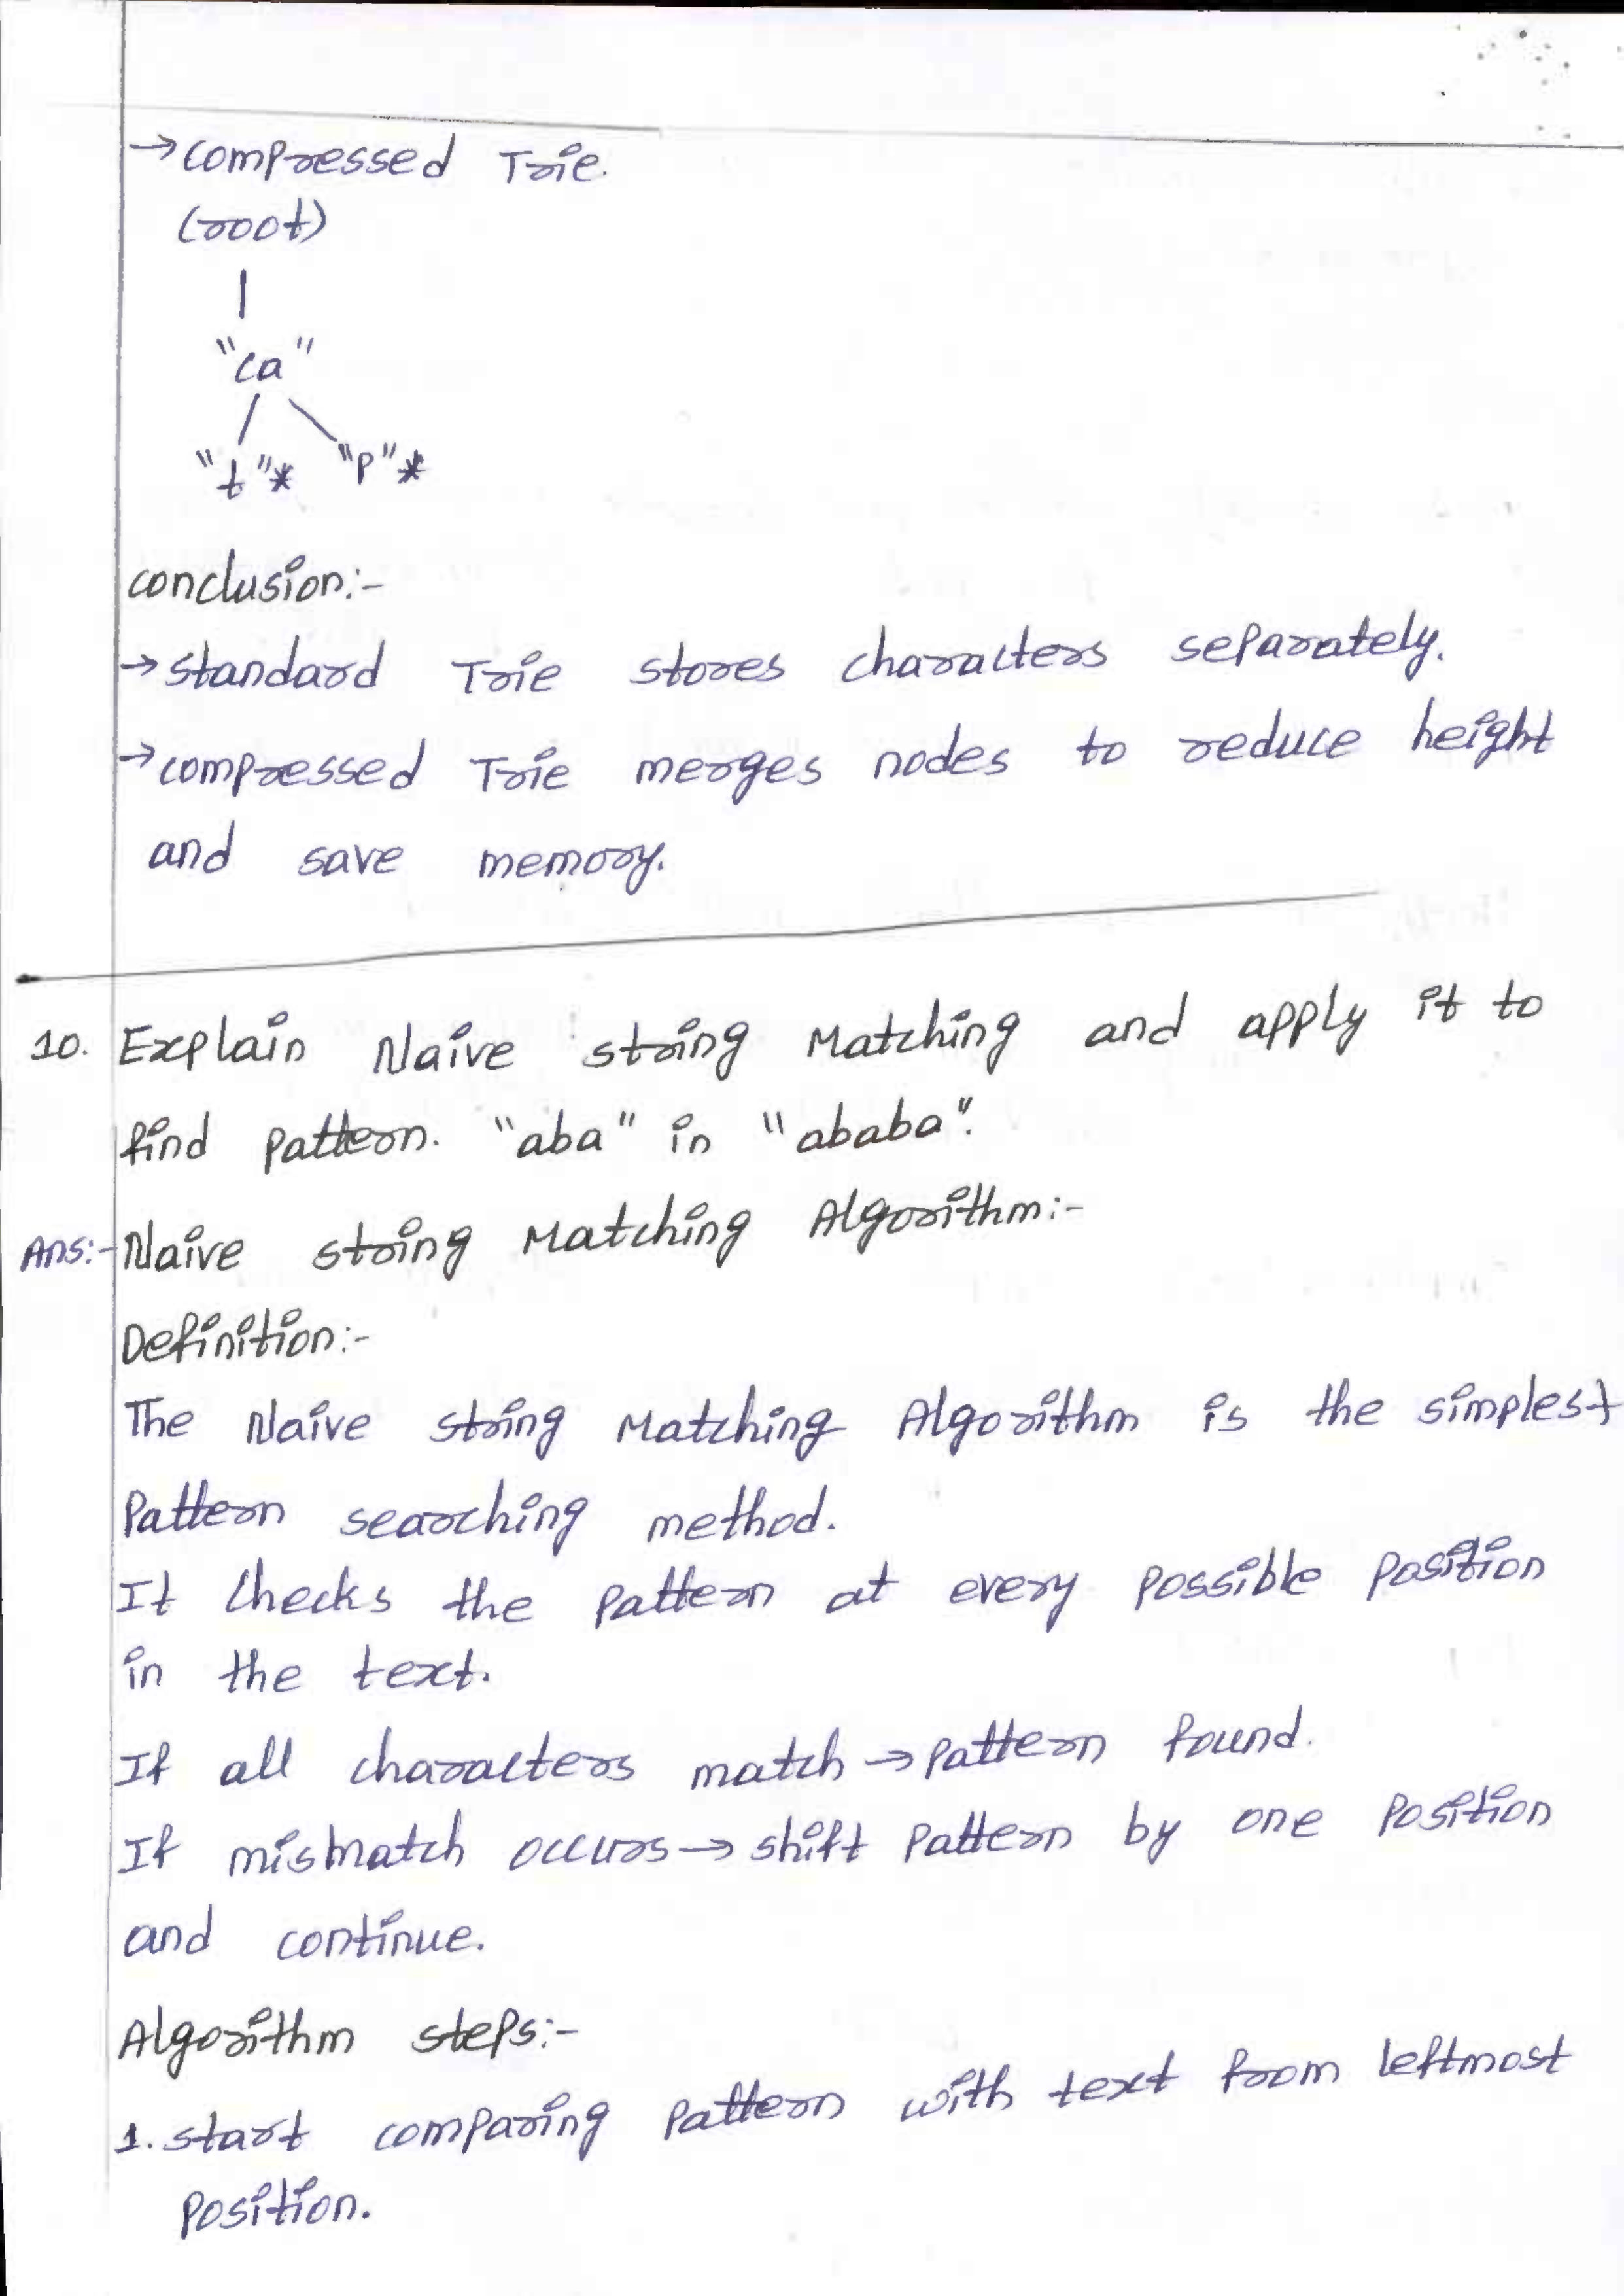 → compressed Trie.
(root)
"ca"
"t"* "p"*
conclusion:-
→ standard Trie stores characters separately.
→ compressed Trie merges nodes to reduce height
and save memory.
10. Explain Naive string Matching and apply it to
find pattern. "aba" in "ababa".
Ans:- Naive string Matching Algorithm:-
Definition:-
The Naive string Matching Algorithm is the simplest
Pattern searching method.
It checks the pattern at every possible position
in the text.
If all characters match → pattern found.
If mismatch occurs → shift pattern by one position
and continue.
Algorithm steps:-
1. start comparing pattern with text from leftmost
position.